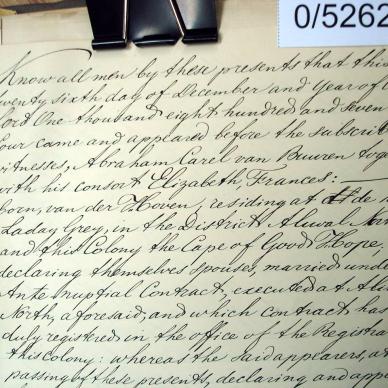 0/5262
Know all men by these presents that this
twenty sixth day of December and Year of
Lort One thousand eight hundred and seven
four came and appeared before the subscrit
witnesses, Abraham Carel van Buuren tog
with his consort Elizabeth, Frances:
born, van der Hoven, residing at de
Laday Grey, in the District Aliwal Nor
and this Colony the Cape of Good Hope,
declaring themselves Spouses, married und
Ante nuptial Contract, executed at Aliw
North, aforesaid, and which contract has
duly registered in the office of the Registra
this colony: whereas the said appearers, a
passing of these presents, declaring and app